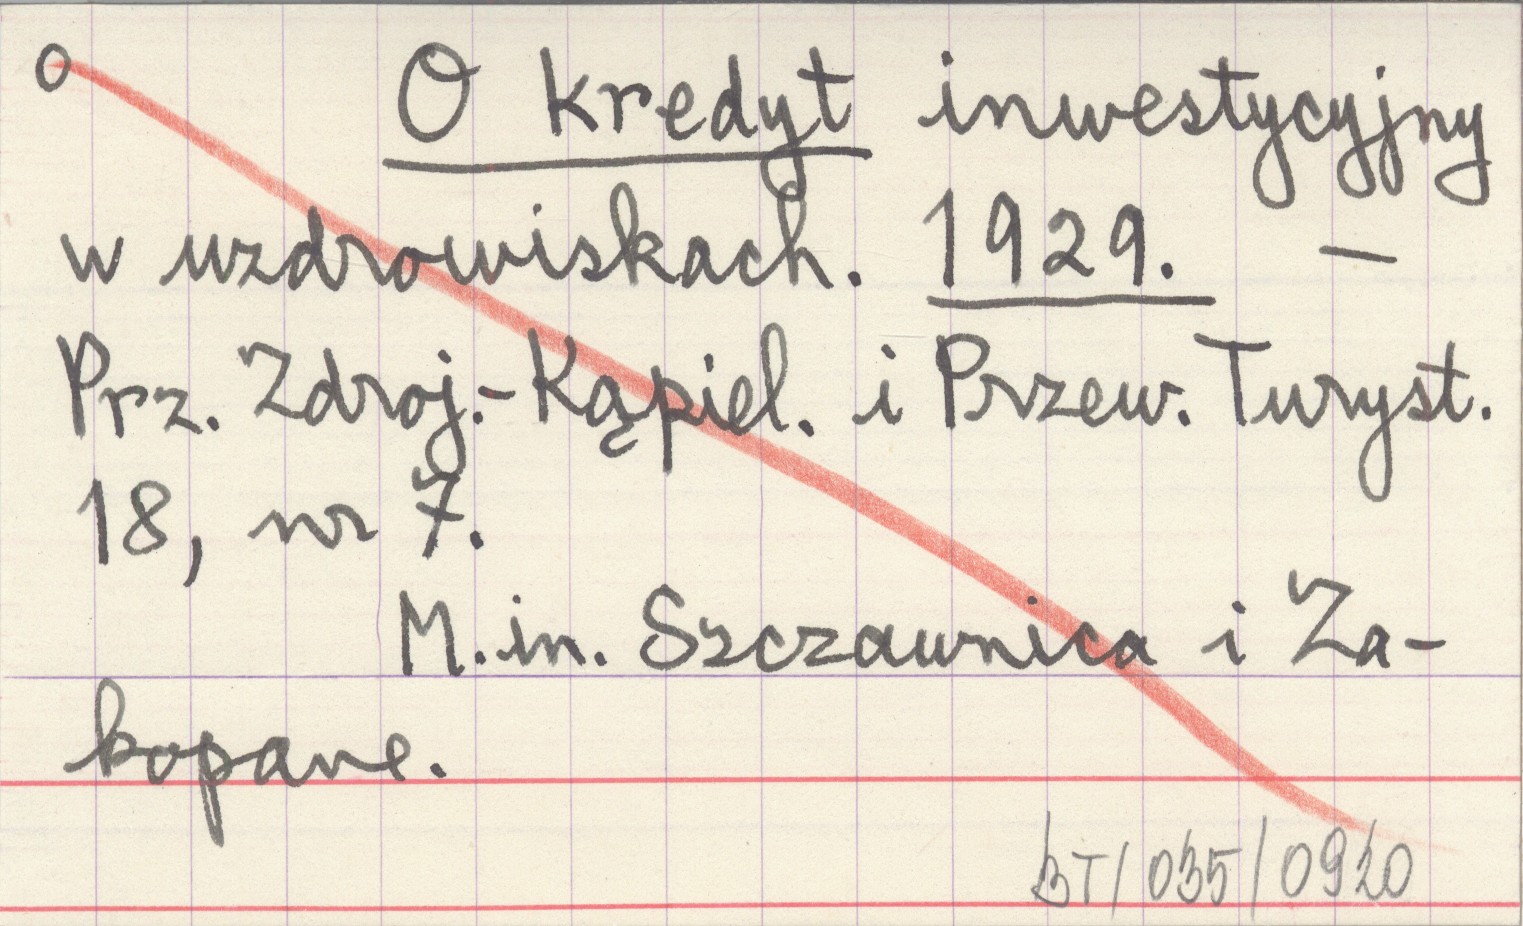 O O kredyt inwestycyjny
w uzdrowiskach. 1929. —
Prz. Zdroj.-Kąpiel. i Przew. Turyst.
18, nr 7.
M.in. Szczawnica i Za-
kopane.
BT/035/0920